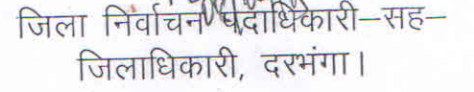 जिला निर्वाचन पदाधिकारी–सह–
जिलाधिकारी, दरभंगा।